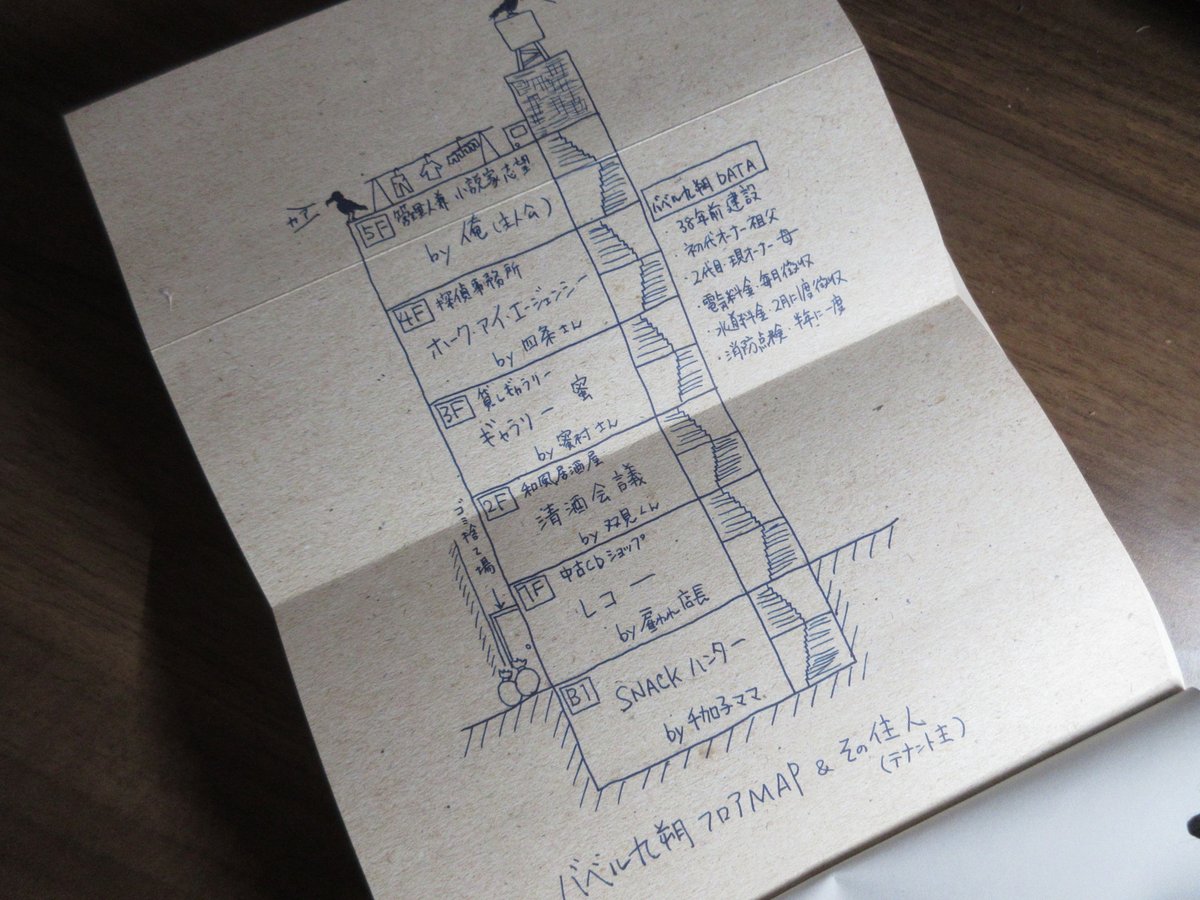 カアー
5F 管理人兼小説家志望
by 俺（主人公）
4F 探偵事務所
ホーク・アイ・エージェンシー
by 四条さん
3F 貸しギャラリー
ギャラリー 蜜
by 蜜村さん
2F 和風居酒屋
清酒会議
by 双見くん
1F 中古CDショップ
レコー
by 雇われ店長
B1 SNACK ハンター
by 千加子ママ
ゴミ捨て場
バベル九朔 DATA
・38年前 建設
・初代オーナー 祖父
・2代目・現オーナー 母
・電気料金・毎月徴収
・水道料金・2月に1度徴収
・消防点検・半年に一度
バベル九朔 フロアMAP & その住人
（テナント主）